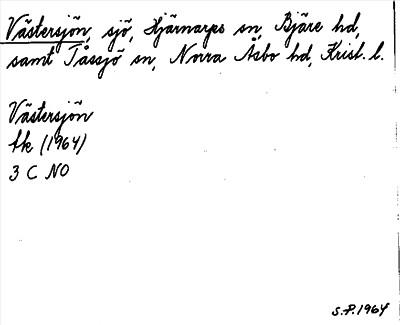 Västersjön, sjö, Hjärnarps sn, Bjäre hd,
samt Tåssjö sn, Norra Åsbo hd, Krist. l.
Västersjön
tk (1964)
3 C NO
S.P. 1964